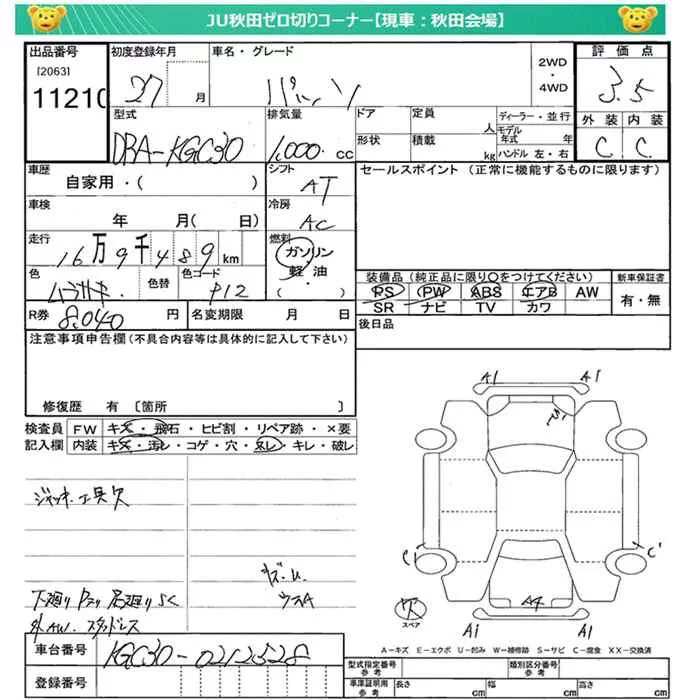 JU秋田ゼロ切りコーナー【現車：秋田会場】
出品番号 初度登録年月 車名・グレード 2WD ・ 4WD 評価点
[2063] 11210 27 月 パッソ 3.5
型式 排気量 ドア 定員 人 ディーラー・並行 外装 内装
DBA-KGC30 1,000 cc 形状 積載 kg モデル年式 年 ハンドル 左・右 C C
車歴 シフト セールスポイント（正常に機能するものに限ります）
自家用・( ) AT
車検 冷房
年 月( 日) AC
走行 燃料
16万9千489km ガソリン
色 色替 色コード 軽油 装備品（純正品に限り○をつけてください） 新車保証書
ムラサキ P12 ( ) PS PW ABS エアB AW 有・無
SR ナビ TV カワ
R券 8,040 円 名変期限 月 日 後日品
注意事項申告欄（不具合内容等は具体的に記入して下さい）
修復歴 有 〔箇所 〕
検査員 FW キズ・飛石・ヒビ割・リペア跡・×要
記入欄 内装 キズ・汚れ・コゲ・穴・スレ・キレ・破レ
A1 A1
ジャッキ、工具欠
C1 C1
キズ・U
ウスA
下廻りPスリ 足廻りSC
外AW.スタッドレス
欠 スペア
A4
A1 A1
A－キズ E－エクボ U－凹み W－補修跡 S－サビ C－腐食 XX－交換済
車台番号 KGC30-0212528
登録番号
型式指定番号 参考 類別区分番号 参考
車庫証明用 参考 長さ cm 幅 cm 高さ cm